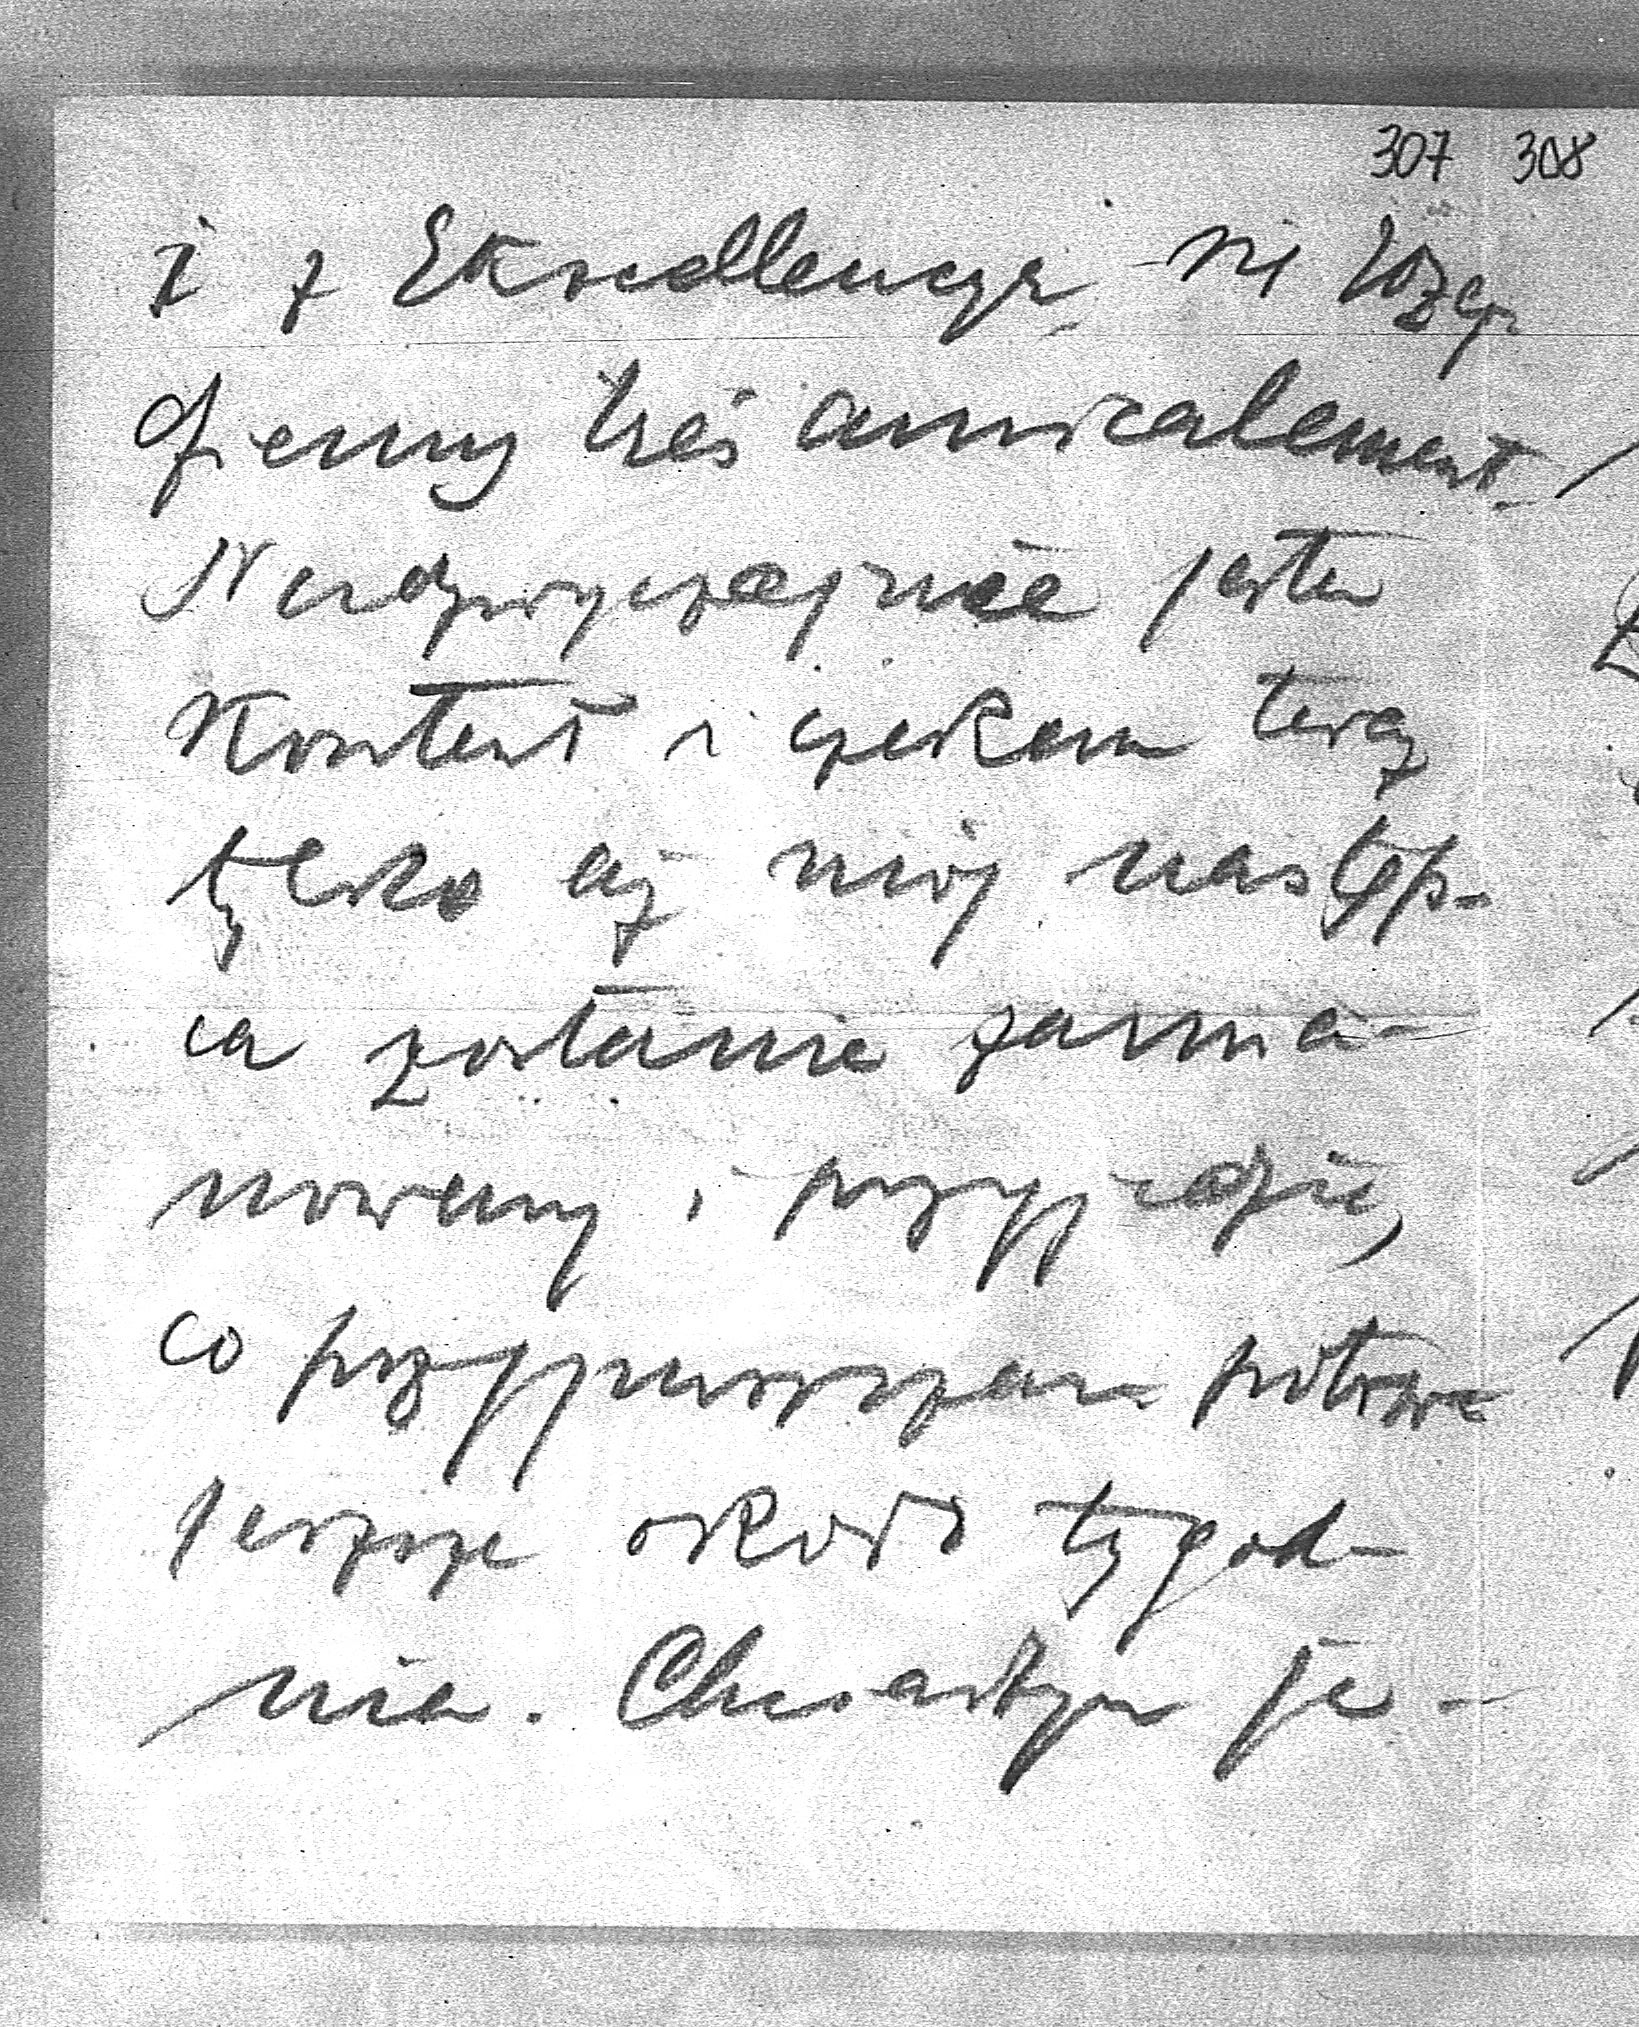 307 308
i z Ekscellencyą się rozej
dziemy très amicalement.
Nadzwyczajnie jestem
Kontent i czekam teraz
tylko aż mój następ-
ca zostanie zamia-
nowany i przyjedzie,
co przypuszczam potrwa
jeszcze około tygod-
nia. Chciałbym je-